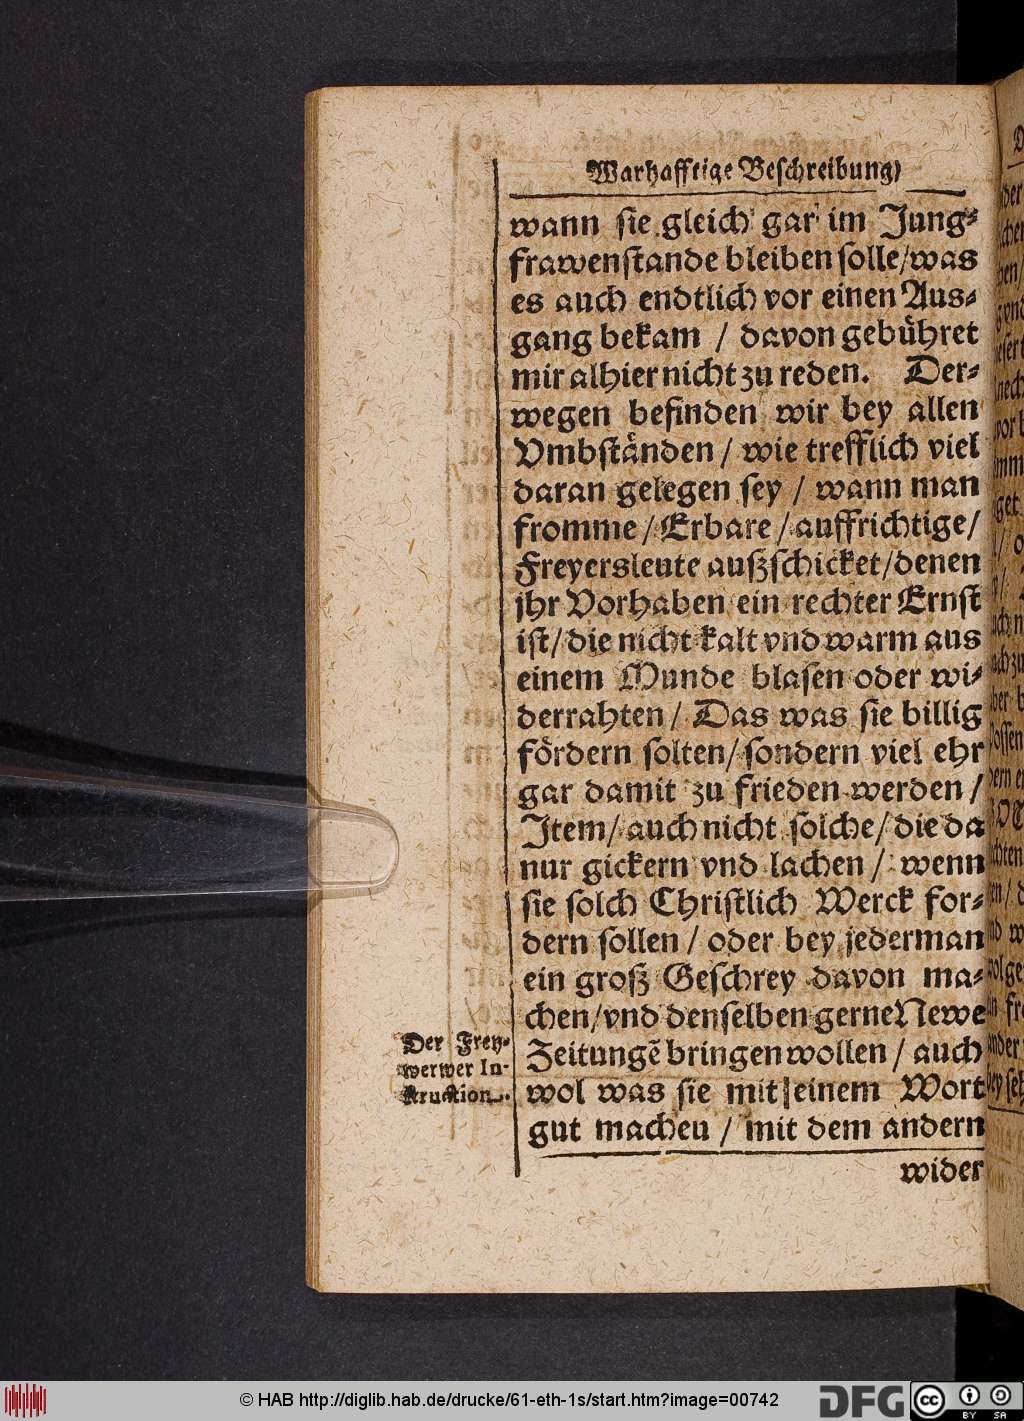 Warhafftige Beschreibung)
wann sie gleich gar im Jung⸗
frawenstande bleiben solle/was
es auch endtlich vor einen Aus⸗
gang bekam / davon gebühret
mir alhier nicht zu reden. Der⸗
wegen befinden wir bey allen
Vmbständen / wie trefflich viel
daran gelegen sey / wann man
fromme / Erbare / auffrichtige /
Freyersleute außschicket/denen
jhr Vorhaben ein rechter Ernst
ist/ die nicht kalt vnd warm aus
einem Munde blasen oder wi⸗
derrahten / Das was sie billig
fördern solten/ sondern viel ehr
gar damit zu frieden werden /
Item/ auch nicht solche/ die da
nur gickern vnd lachen / wenn
sie solch Christlich Werck for⸗
dern sollen / oder bey jederman
ein groß Geschrey davon ma⸗
chen/vnd denselben gerne Newe
Zeitungẽ bringen wollen / auch
wol was sie mit einem Wort
gut macheu / mit dem andern
wider
Der Frey⸗
werwer In-
struction.
© HAB http://diglib.hab.de/drucke/61-eth-1s/start.htm?image=00742
DFG
cc
BY SA